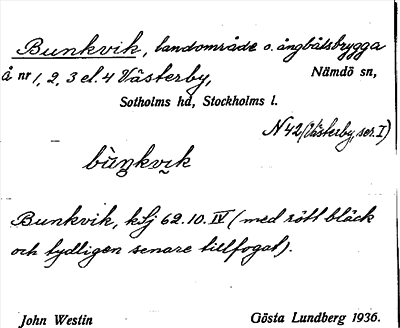 Bunkvik, landområde o. ångbåtsbrygga
å nr 1, 2, 3 el. 4 Västerby, Nämdö sn,
Sotholms hd, Stockholms l.
N 42 (Västerby, ser. I)
bùŋkvik
Bunkvik, kSj 62.10. IV (med rött bläck
och tydligen senare tillfogat).
John Westin Gösta Lundberg 1936.